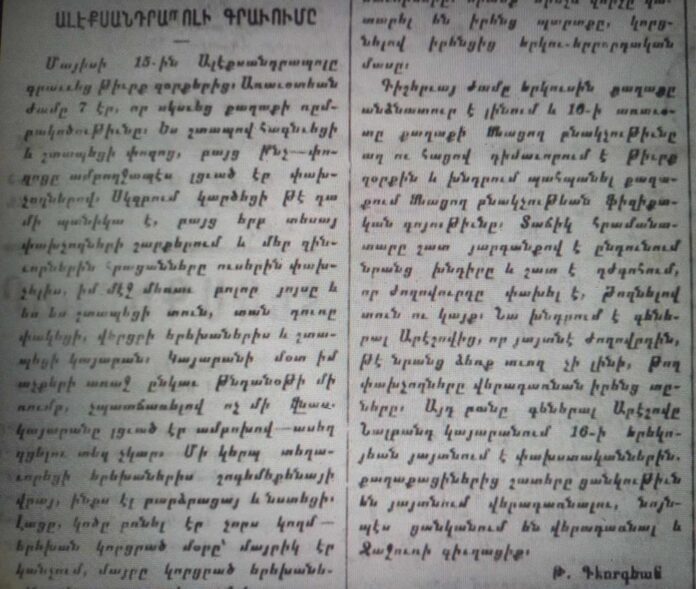 ԱԼԷՔՍԱՆԴՐԱՊՈԼԻ ԳՐԱՒՈՒՄԸ
Մայիսի 15-ին Ալէքսանդրապոլը
գրաւեց թիւրք զօրքերից։ Առաւօտեան
ժամը 7 էր, որ սկսւեց քաղաքի ռմբ-
բակոծութիւնը։ Ես շտապով հագնւեցի
և շտապեցի փողոց, բայց ի՞նչ—փո-
ղոցը ամբողջապէս լցւած էր փախ-
չողներով։ Սկզբում կարծեցի թէ դա
մի պանիկա է, բայց երբ տեսայ
փախչողների շարքերում և մեր զին-
ւորներին հրացանները ուսերին փախ-
չելիս, իմ մէջ մեռաւ բոլոր յոյսը և
ես ևս շտապեցի տուն, տան դուռը
փակեցի, վերցրի երեխաներիս և շտա-
պեցի կայարան։ Կայարանի մօտ իմ
աչքերի առաջ ընկաւ թնդանօթի մի
ռումբ, չպատճառելով ոչ մի վնաս.
կայարանը լցւած էր ամբոխով—ասեղ
գցելու տեղ չկար։ Մի կերպ տեղա-
ւորեցի երեխաներիս շոգեմեքենայի
վրայ, ինքս էլ բարձրացայ և նստեցի։
Լացը, կոծը բռնել էր չորս կողմ—
երեխան կորցրած մօրը՝ մայրիկ էր
կանչում, մայրը կորցրած երեխանե-
տարել են իրենց պարտքը, կորց-
նելով իրենցից երկու-երրորդական
մասը։
Գիշերւայ ժամը երկուսին քաղաքը
անձնատուր է լինում և 16-ի առաւօ-
տը քաղաքի մնացող բնակչութիւնը
աղ ու հացով դիմաւորում է թիւրք
զօրքին և խնդրում պահպանել քաղա-
քում մնացող բնակչութեան ֆիզիքա-
կան գոյութիւնը։ Տաճիկ հրամանա-
տարը շատ յարգանքով է ընդունում
նրանց խնդիրը և շատ է զժգոհում,
որ ժողովուրդը փախել է, թողնելով
տուն ու կայք։ Նա խնդրում է գենե-
րալ Արէշովից, որ յայտնէ ժողովրդին,
թէ նրանց ձեռք տւող չի լինի, թող
փախչողները վերադառնան իրենց տը-
ները։ Այդ բանը գեներալ Արէշովը
Նալբանդ կայարանում 16-ի երեկո-
յեան յայտնում է փախստականներին.
քաղաքացիներից շատերը ցանկութիւն
են յայտնում վերադառնալու, նոյն-
պէս ցանկանում են վերադառնալ և
Ջաջուռի գիւղացիք։
Թ. Գևորգեան